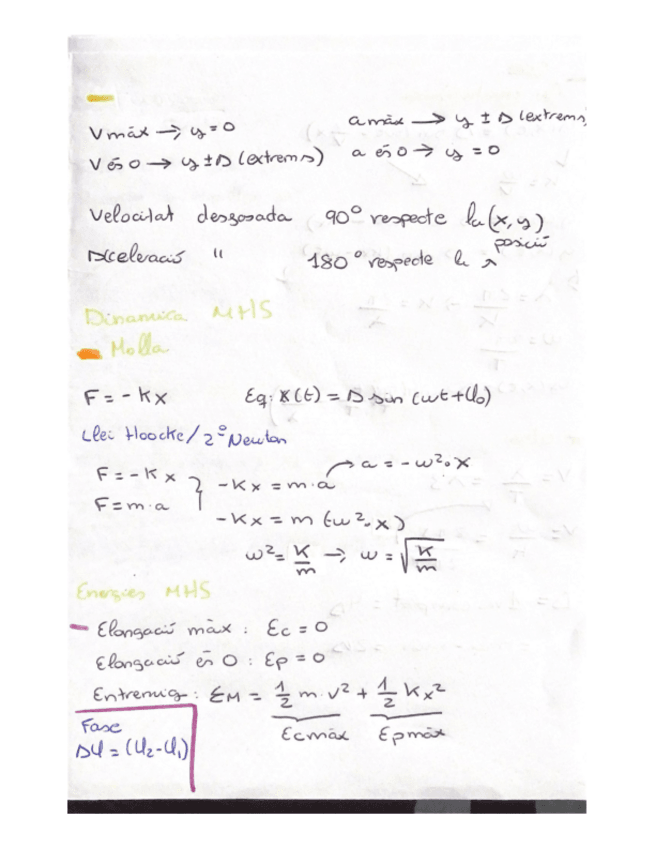 Vmàx → y = 0
amàx → y ± A (extrems)
V és 0 → y ± A (extrems)
a és 0 → y = 0
Velocitat desfosada 90° respecte la (x, y)
posició
Acceleració " 180° respecte la
Dinamica MHS
Molla
F = - Kx
Eq: x(t) = A sin (wt + φ₀)
Llei Hoocke / 2º Newton
F = - K x
F = m · a
- Kx = m · a
a = - w² · x
- Kx = m (-w² · x)
w² = K/m → w = √(K/m)
Energies MHS
Elongació màx : Ec = 0
Elongació és 0 : Ep = 0
Entremig : EM = 1/2 m · v² + 1/2 K x²
Ecmàx Epmàx
Fase
Δφ = (φ₂ - φ₁)